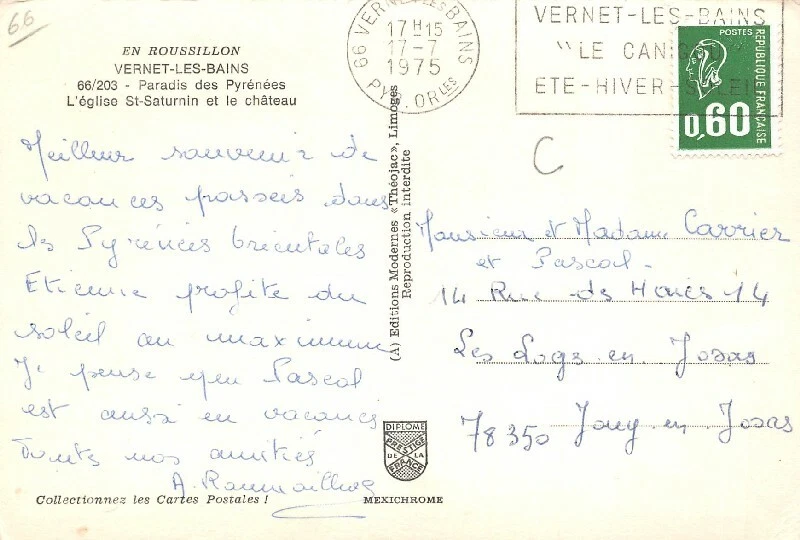 66
EN ROUSSILLON
VERNET-LES-BAINS
66/203 - Paradis des Pyrénées
L'église St-Saturnin et le château
66 VERNET-LES-BAINS
17 H 15
17-7
1975
PYR. ORLES
VERNET-LES-BAINS
"LE CANIGOU"
ETE-HIVER-SOLEIL
POSTES
REPUBLIQUE FRANÇAISE
0,60
C
Meilleur souvenir de
vacances passées dans
les Pyrénées Orientales
Etienne profite du
soleil au maximum
J' pense que Pascal
est aussi en vacances
Toutes nos amitiés
(A) Editions Modernes «Théojac», Limoges
Reproduction interdite
Monsieur et Madame Carrier
et Pascal
14 Rue des Haies 14
Les Loges en Josas
78350 Jouy en Josas
DIPLOME
PRESTIGE
DE LA
FRANCE
Collectionnez les Cartes Postales !
MEXICHROME